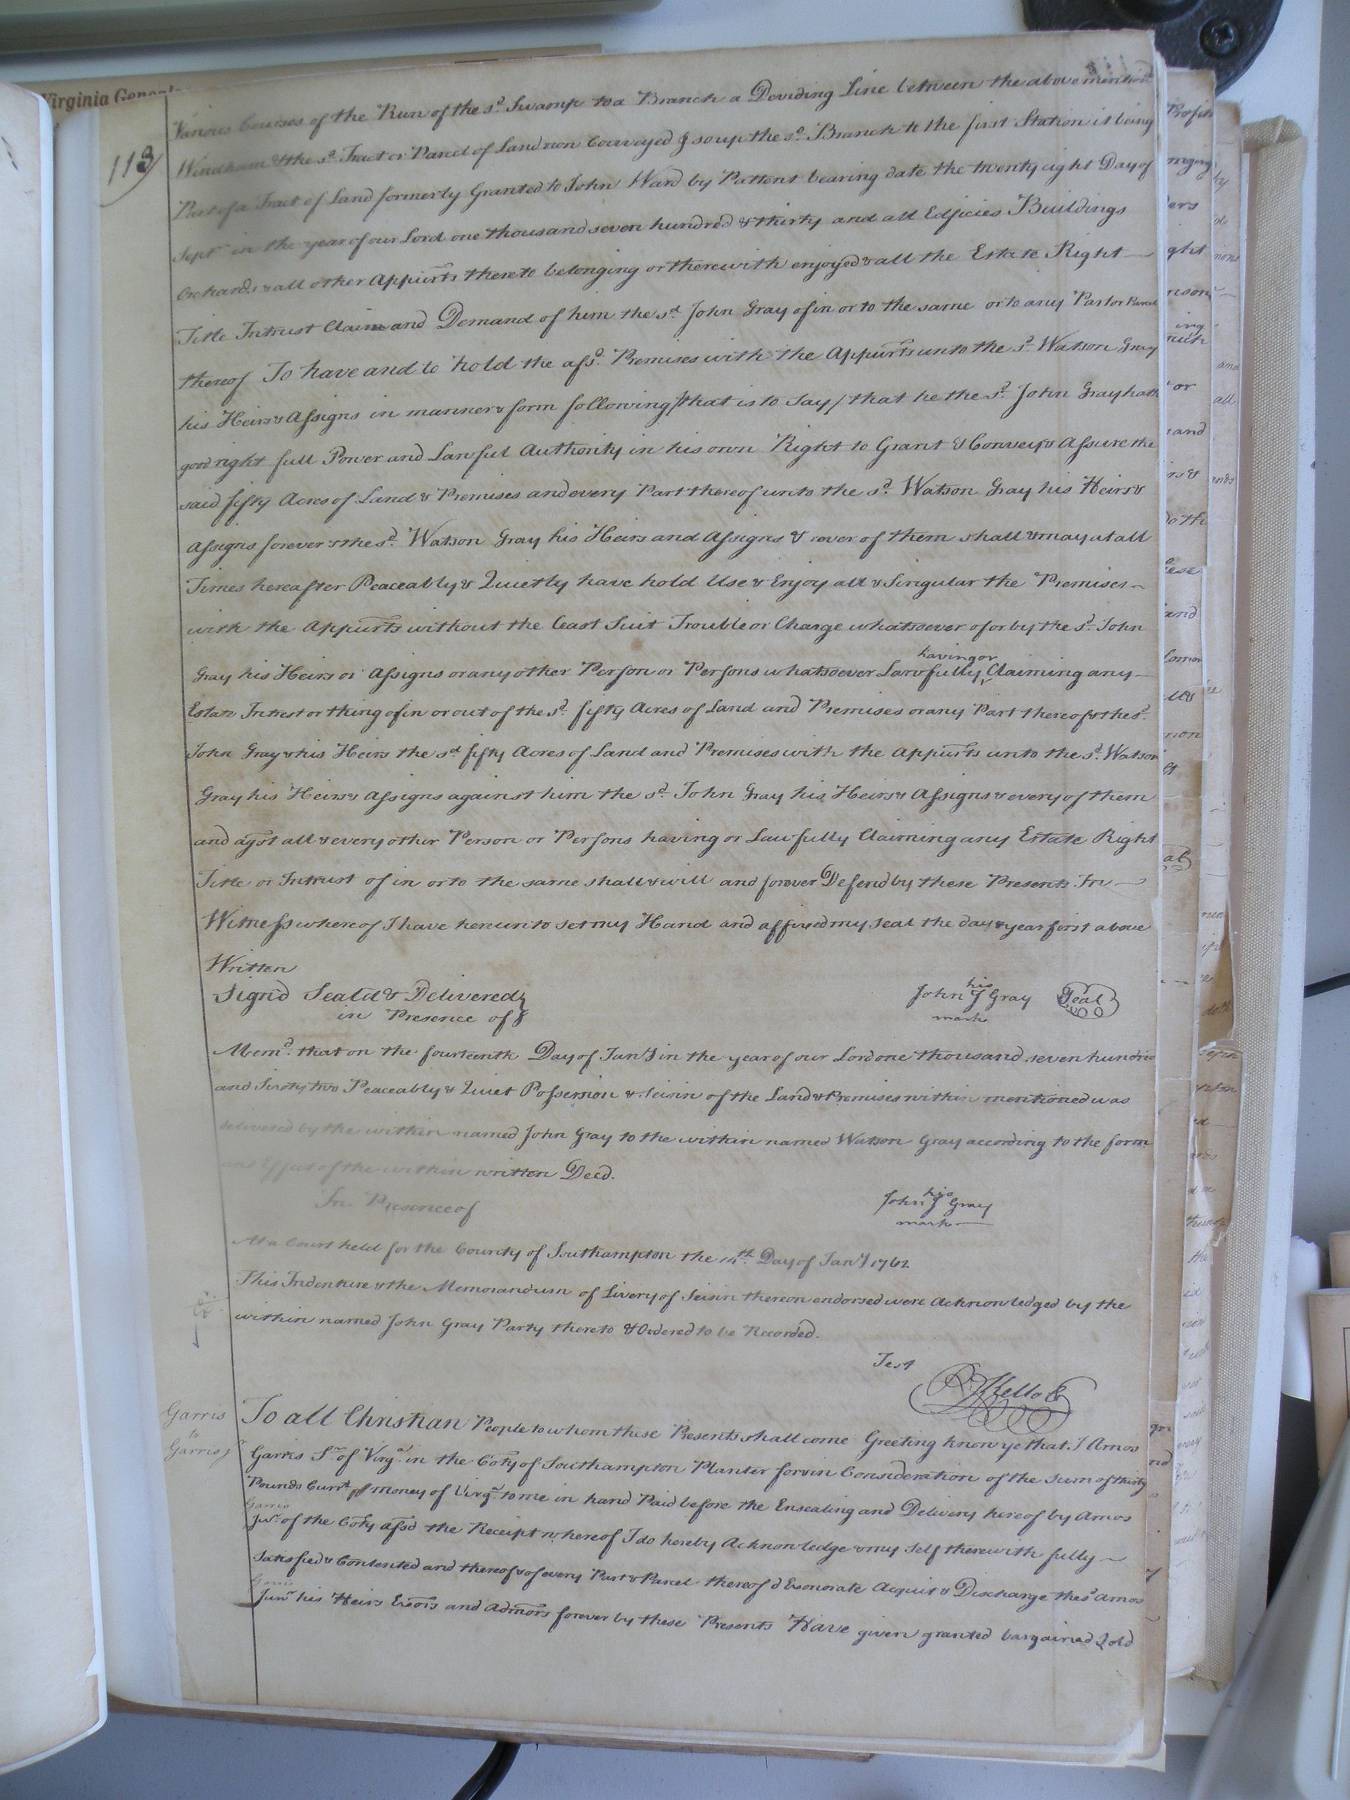 Virginia Genealo
113
Various Courses of the Run of the sd. Swamp to a Branch a Deviding Line between the above mention'd
Windham & the sd. Tract or Parcel of Land now Conveyed & so up the sd. Branch to the first Station it being
Part of a Tract of Land formerly Granted to John Ward by Pattent bearing date the twenty eight Day of
Septr. in the year of our Lord one thousand seven hundred & thirty and all Edficies Buildings
Orchards & all other Appurts thereto belonging or therewith enjoyed & all the Estate Right
Title Intrust Claim and Demand of him the sd. John Gray of in or to the same or to any Part or Parcel
thereof To have and to hold the afsd. Premises with the Appurts unto the sd. Watson Gray
his Heirs & Assigns in manner & form following /that is to Say/ that he the sd. John Gray hath
good right full Power and Lawful Authority in his own Right to Grant & Convey & Assure the
said fifty Acres of Land & Premises and every Part thereof unto the sd. Watson Gray his Heirs &
Assigns forever & the sd. Watson Gray his Heirs and Assigns & ever of them shall & may at all
Times hereafter Peaceably & Quietly have hold Use & Enjoy all & Singular the Premises
with the Appurts without the least Suit Trouble or Charge whatsoever of or by the sd. John
having or
Gray his Heirs or Assigns or any other Person or Persons whatsoever Lawfully Claiming any
Estate Intrest or thing of in or out of the sd. fifty Acres of Land and Premises or any Part thereof & the sd.
John Gray & his Heirs the sd fifty Acres of Land and Premises with the Appurts unto the sd. Watson
Gray his Heirs & Assigns against him the sd. John Gray his Heirs & Assigns & every of them
and agst all & every other Person or Persons having or Lawfully Claiming any Estate Right
Title or Intrust of in or to the same shall & will and forever Defend by these Presents In
Witness whereof I have hereunto set my Hand and affixed my Seal the day & year first above
Written
Sign'd Seal'd & Delivered
in Presence of
his
John J Gray Seal
mark
Memd. that on the fourteenth Day of Jany in the year of our Lord one thousand seven hundred
and Sixty two Peaceably & Quiet Possession & Seisin of the Land & Premises within mentioned was
delivered by the within named John Gray to the within named Watson Gray according to the form
and Effect of the within written Deed.
In Presence of
his
John J Gray
mark
At a Court held for the County of Southampton the 14th. Day of Jany 1762
This Indenture & the Memorandum of Livery of Seisin thereon endorsed were Acknowledged by the
within named John Gray Party thereto & Ordered to be Recorded.
Test
R. Kello
Garris
to
Garris jr
To all Christian People to whom these Presents shall come Greeting know ye that I Amos
Garris Sr. of Virga. in the Coty of Southampton Planter for & in Consideration of the sum of thirty
Pounds Currt. money of Virga. to me in hand Paid before the Ensealing and Delivery hereof by Amos
Garris
Junr. of the Coty afsd the Receipt whereof I do hereby Acknowledge & my self therewith fully
Satisfied & Contented and thereof & of every Part & Parcel thereof d Exonorate Acquit & Discharge the sd Amos
Garris
Junr. his Heirs Exors and Admors forever by these Presents Have given granted bargained Sold